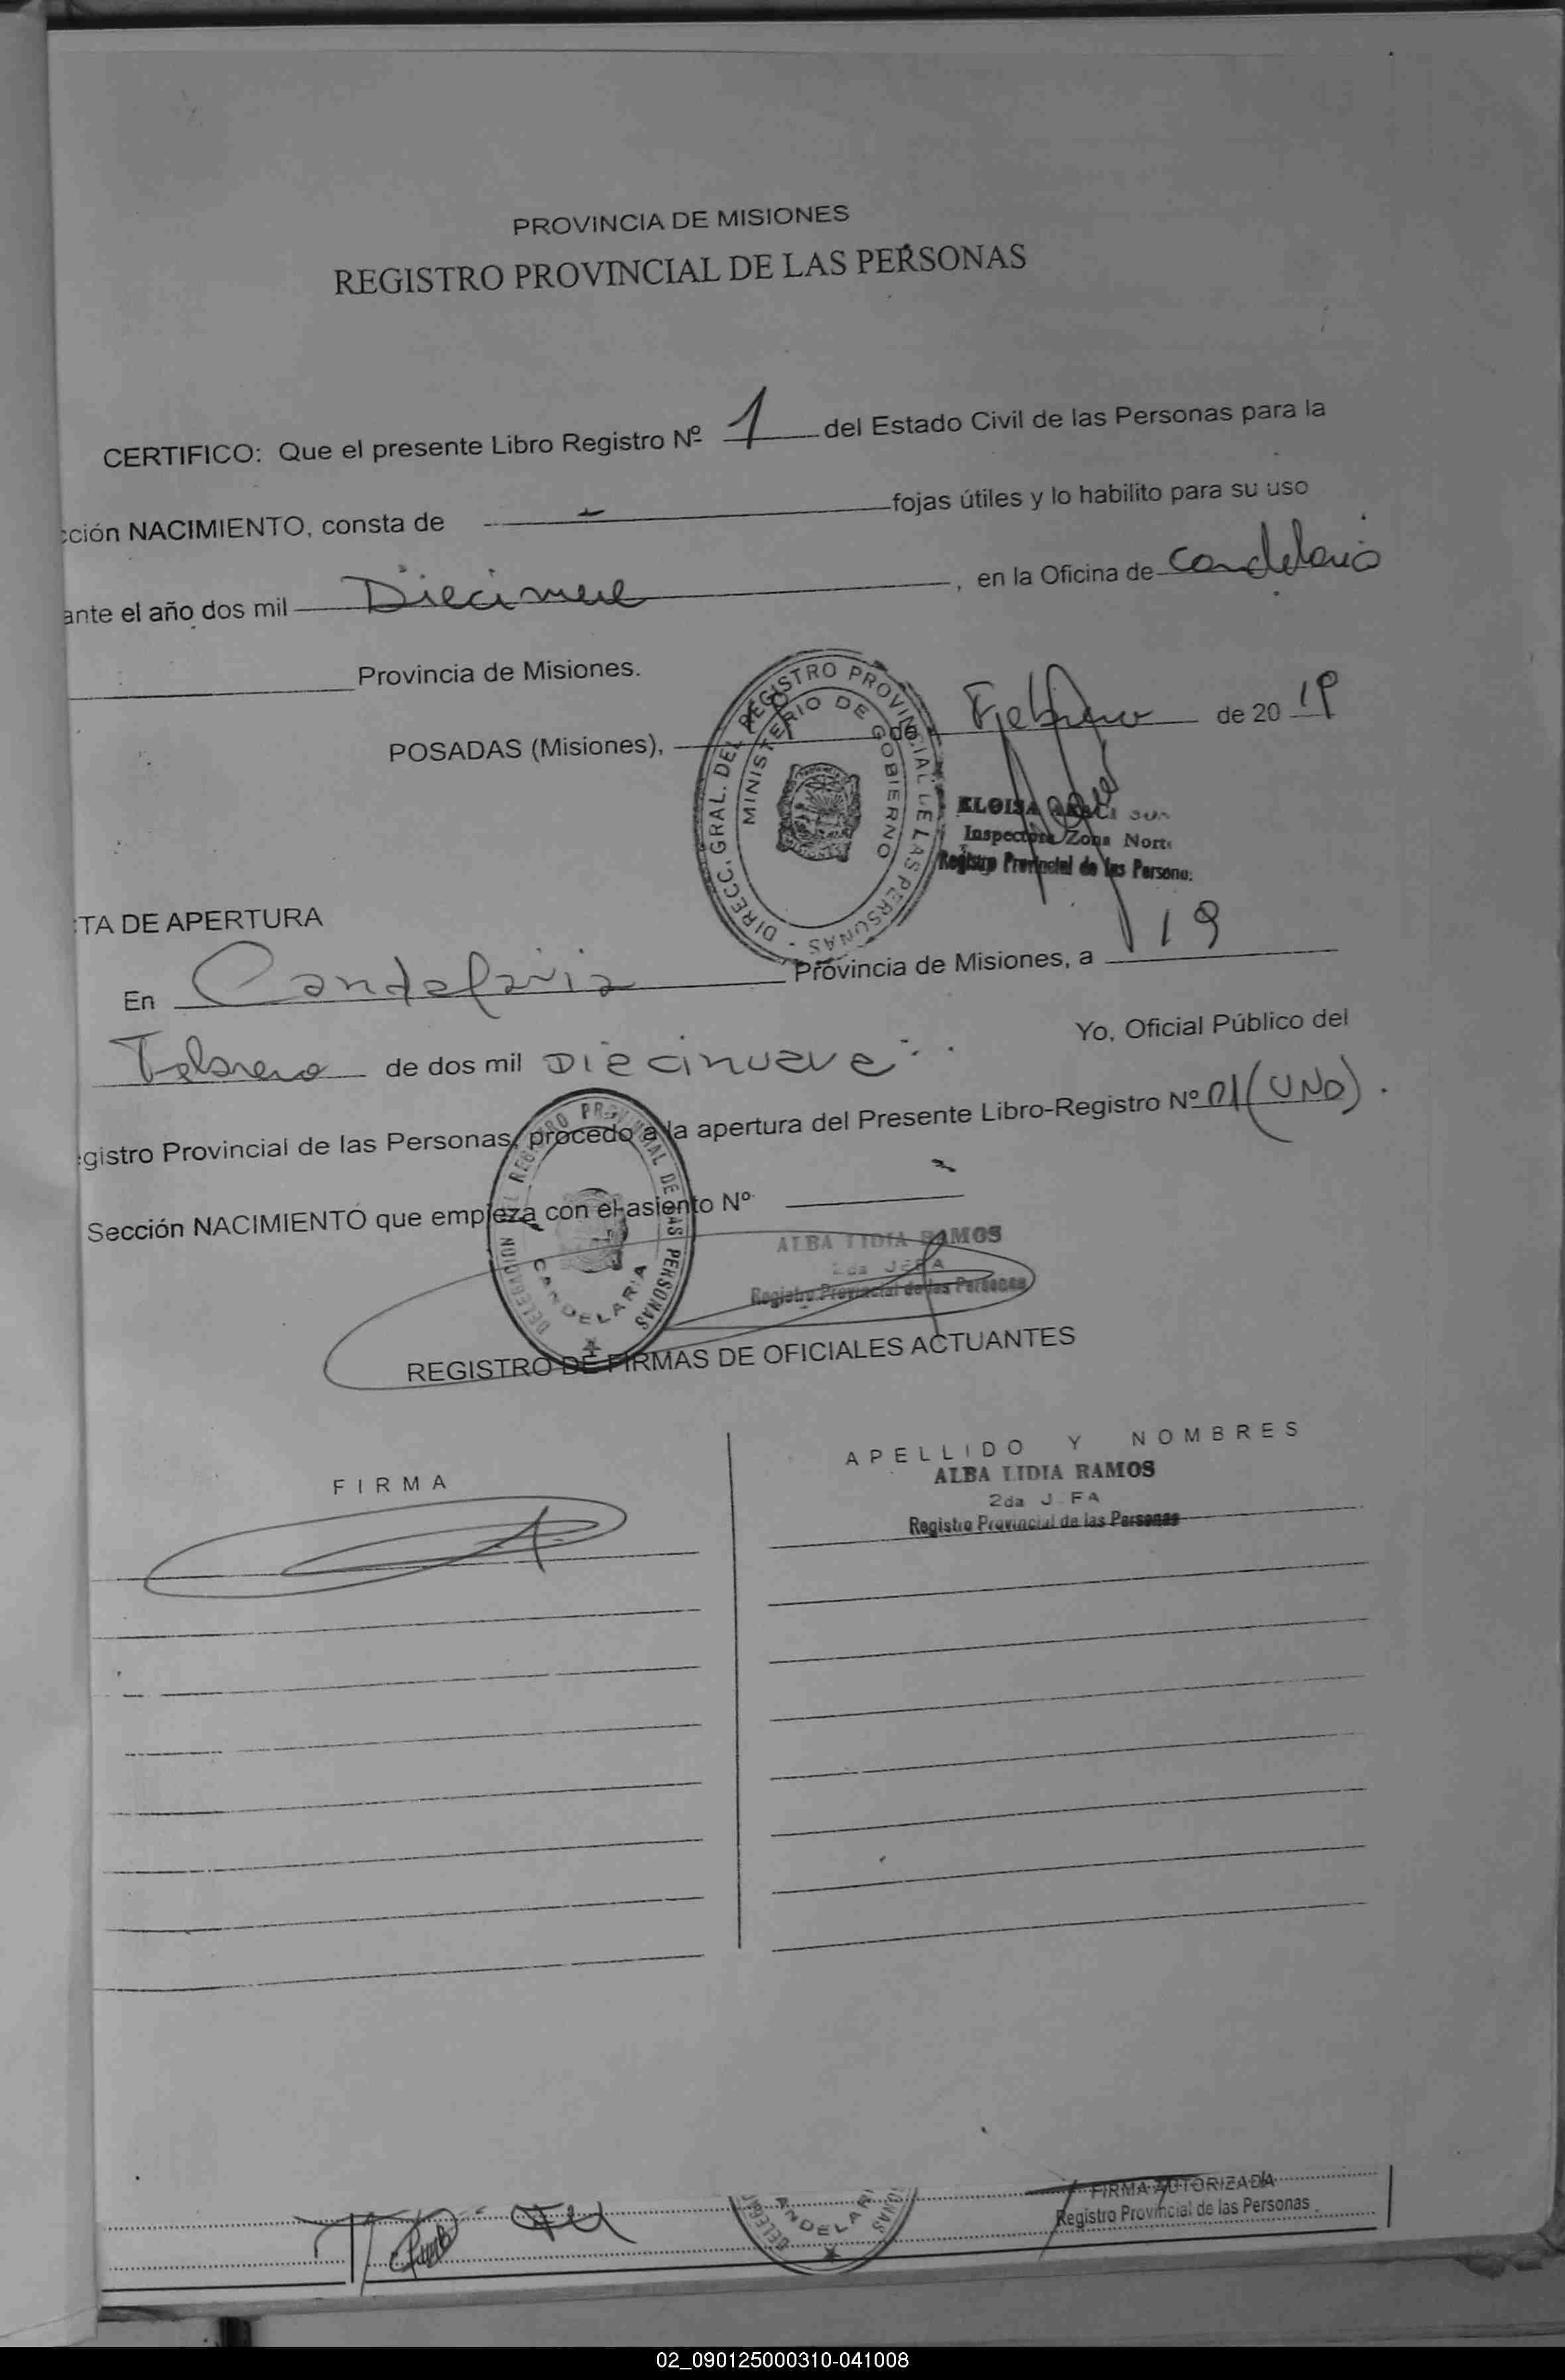 PROVINCIA DE MISIONES
REGISTRO PROVINCIAL DE LAS PERSONAS
CERTIFICO: Que el presente Libro Registro Nº 1 del Estado Civil de las Personas para la
cción NACIMIENTO, consta de - fojas útiles y lo habilito para su uso
ante el año dos mil Diecinueve, en la Oficina de Candelaria
Provincia de Misiones.
POSADAS (Misiones), de Febrero de 20 19
DIRECC. GRAL. DEL REGISTRO PROVINCIAL DE LAS PERSONAS -
MINISTERIO DE GOBIERNO
ELOISA
Inspectora Zona Norte
Registro Provincial de las Persona
TA DE APERTURA
En Candelaria Provincia de Misiones, a 19
Febrero de dos mil Diecinueve Yo, Oficial Público del
gistro Provincial de las Personas, procedo a la apertura del Presente Libro-Registro Nº 01 (UNO).
Sección NACIMIENTO que empieza con el asiento Nº -
DELEGACION DEL REGISTRO PROVINCIAL DE LAS PERSONAS
CANDELARIA
ALBA LIDIA RAMOS
2da JEFA
Registro Provincial de las Personas
REGISTRO DE FIRMAS DE OFICIALES ACTUANTES
FIRMA
APELLIDO Y NOMBRES
ALBA LIDIA RAMOS
2da J FA
Registro Provincial de las Personas
ANDELARI
FIRMA AUTORIZADA
Registro Provincial de las Personas
02_090125000310-041008